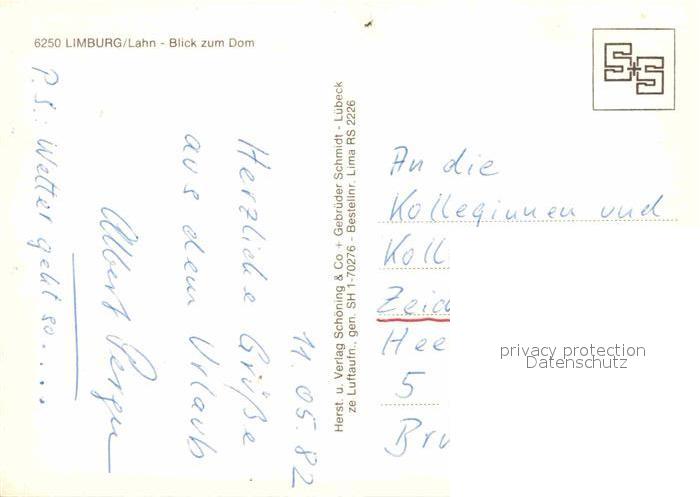 6250 LIMBURG/Lahn - Blick zum Dom
S+S
11.05.82
Herzliche Grüße
aus dem Urlaub
Albert
P.S.: Wetter geht so.....
Herst. u. Verlag Schöning & Co + Gebrüder Schmidt - Lübeck
ze Luftaufn., gen. SH 1-70276 - Bestellnr. Lima RS 2226
An die
Kolleginnen und
Koll
Zeid
Hee
5
Bru
privacy protection
Datenschutz